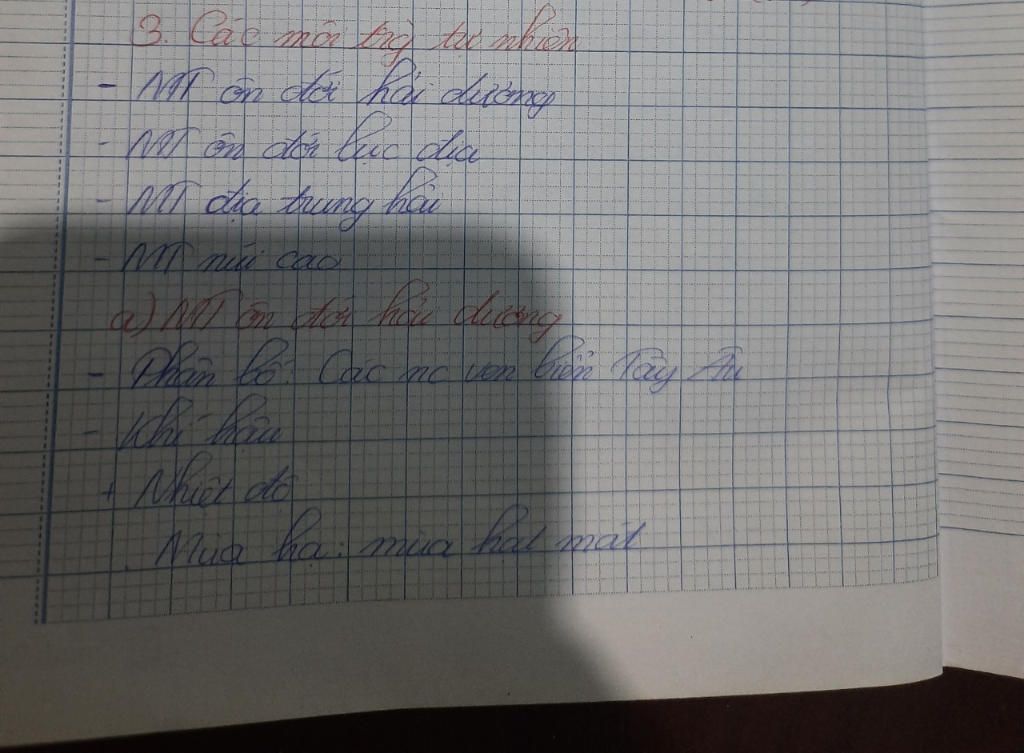 3. Các môi trg tự nhiên
- MT ôn đới hải dương
- MT ôn đới lục địa
- MT địa trung hải
- MT núi cao
a) MT ôn đới hải dương
- Phân bố: Các nc ven biển Tây Âu
- Khí hậu
+ Nhiệt độ
. Mùa hạ: mùa hạt mát